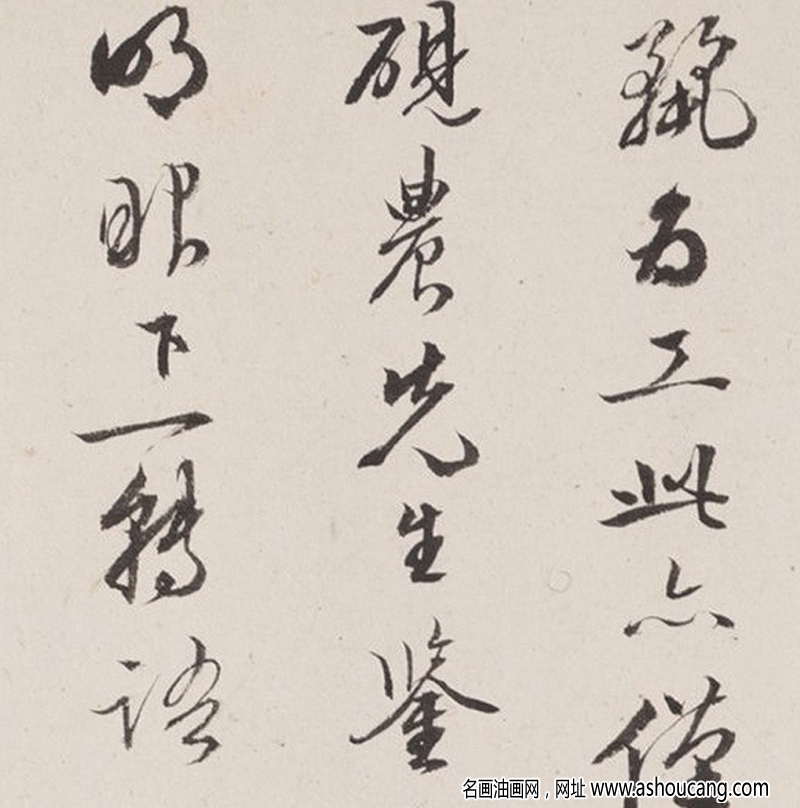 為工此亦僅
硯農先生鑒
明眼下一轉語
名画油画网，网址 www.ashoucang.com